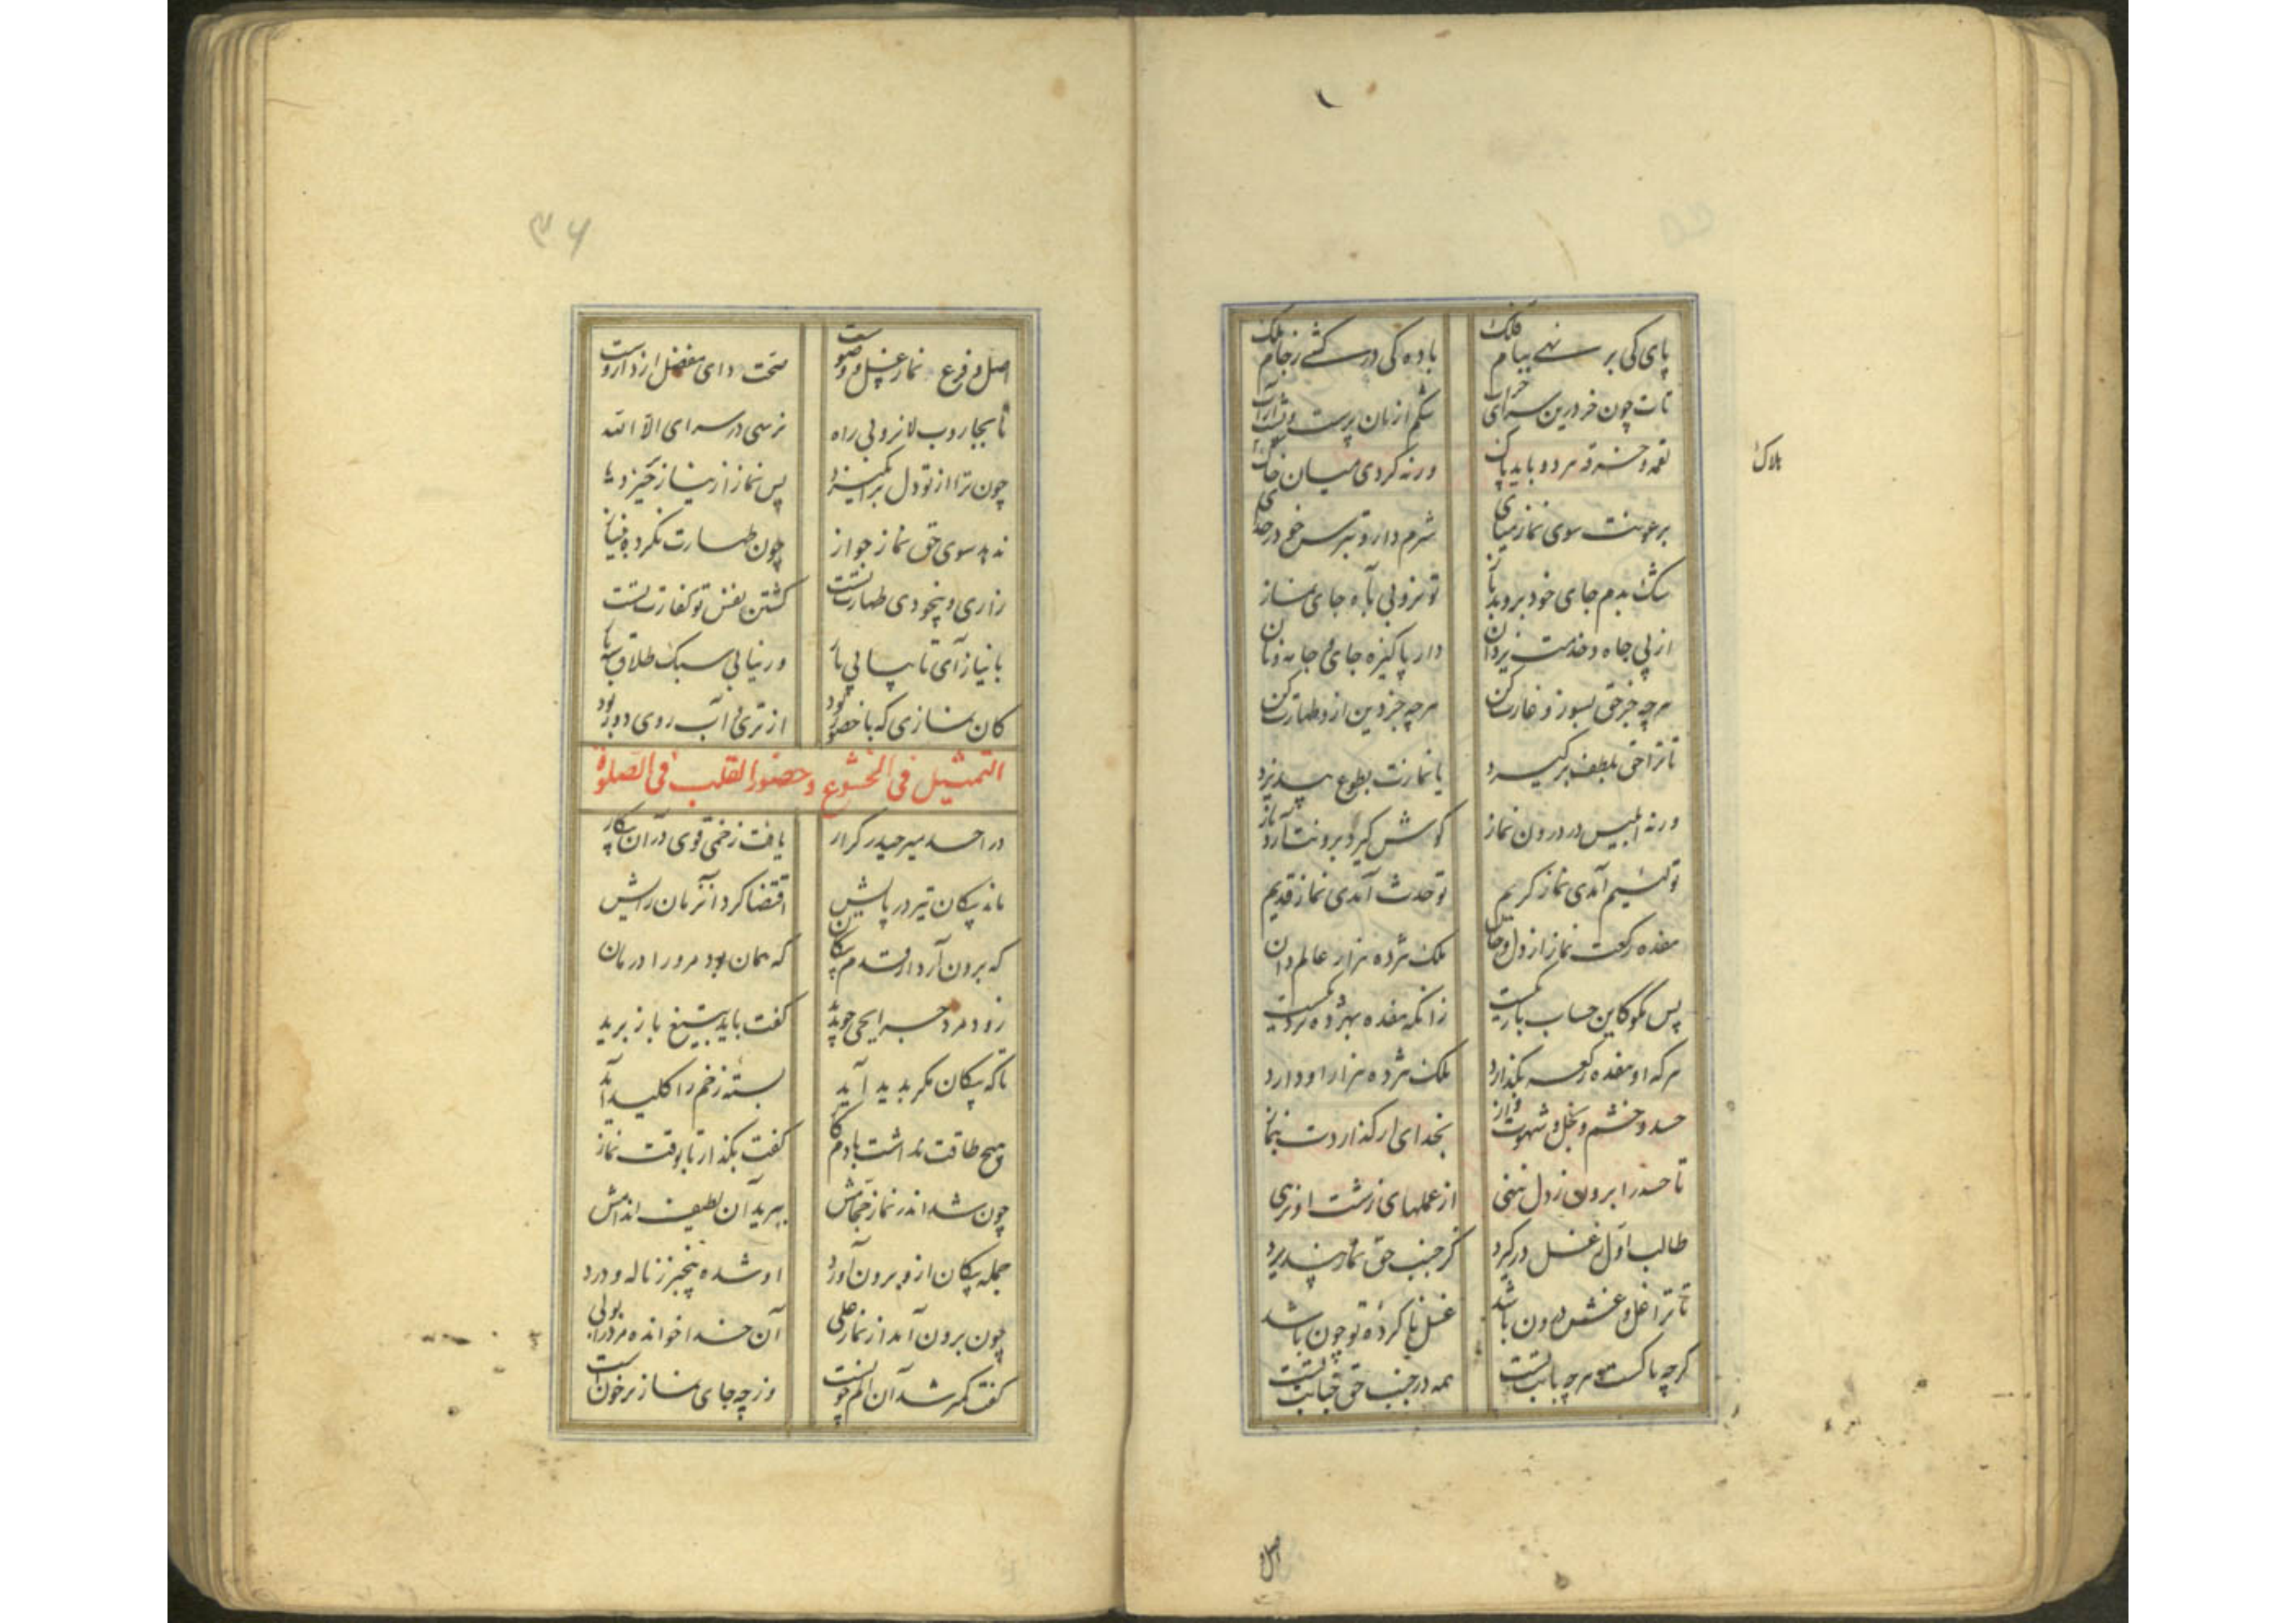 پای کی بر نهی ببام فلک باده کی در کشی ز جام ملک
تات چون خر درین سرای خراب شکم از نان پرست و پشت از آب
لقمه و خرقه هر دو باید پاک ورنه گردی میان خاک
هلاک
برعونت سوی نماز میای شرم دار و بترس از خدای
سگ بدم جای خود بروبد باز تو نروبی بآه جای نماز
از پی جاه و خدمت یزدان دار پاکیزه جای و جامه و نان
هرچه جز حق بسوز و غارت کن هرچه جز دین ازو طهارت کن
تا ترا حق بلطف برگیرد با نمازت بطوع بپذیرد
ورنه ابلیس در درون نماز گوش گیرد برونت آرد باز
تو لئیم آمدی نماز کریم تو حدث آمدی نماز قدیم
هفده رکعت نماز از دل و جان ملک هژده هزار عالم دان
پس مگو کاین حساب باریکست زانکه هفده بهژده نزدیکست
هر که او هفده رکعه بگذارد ملک هژده هزار او دارد
حسد و خشم و بخل و شهوت و آز بخدای ار گذاردت بنماز
تا حسد را برون ز دل ننهی از عملهای زشت او نرهی
طالب اول ز غسل درگیرد کز جنب حق نماز نپذیرد
تا ترا غل و غش درون باشد غسل ناکرده تو چون باشد
گرچه پاکست هرچه بابت تست همه در جنب حق جنابت تست
اصل و
۳۶
اصل و فرع نماز غسل و وضوست صحت داء معضل از داروست
تا بجاروب لا نروبی راه نرسی در سرای الا الله
چون ترا از تو دل برانگیزد پس نماز از نیاز خیزد
ندهد سوی حق نماز جواز چون طهارت نکرده بنیاز
زاری و بیخودی طهارت تست کشتن نفس تو کفارت تست
با نیاز آی تا بیابی بار ور نیابی سبک طلاق سه بار
کان نمازی که با حضور بود از تری آب روی دور بود
التمثیل فی الخشوع و حضور القلب فی الصلوة
در احد میر حیدر کرار یافت زخمی قوی در آن پیکار
ماند پیکان تیر در پایش اقتضا کرد آنزمان رایش
که برون آرد از قدم پیکان که همان بود مرورا درمان
زود مرد جرایحی چو بدید گفت باید بتیغ باز برید
تا که پیکان مگر بدید آید بسته زخم را کلید آید
هیچ طاقت نداشت با دم گاز گفت بگذار تا بوقت نماز
چون شد اندر نماز حجامش ببرید آن لطیف اندامش
جمله پیکان ازو برون آورد او شده بیخبر ز ناله و درد
چون برون آمد از نماز علی آن خدا خوانده مرورا بولی
گفت کمتر شد آن الم چونست وز چه جای نماز پر خونست